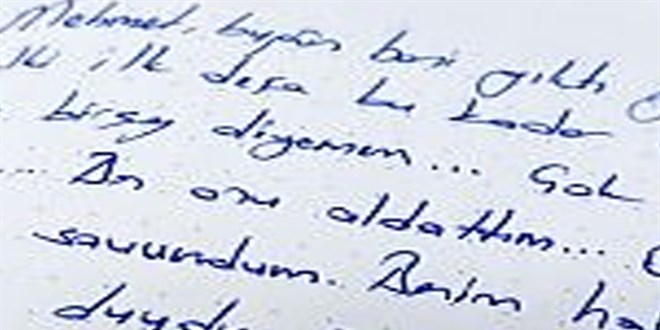 Mehmet, bugün beni yıktı
ilk defa bu kadar
birşey diyemem... Çok
... Ben onu aldattım...
savundum. Benim
duydu